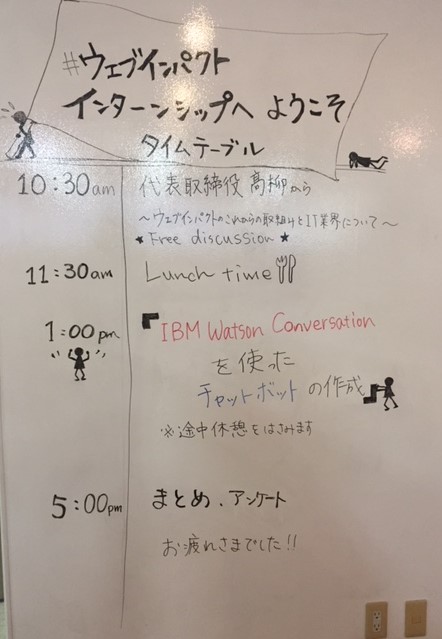 #ウェブインパクト
インターンシップへ ようこそ
タイムテーブル
10:30am 代表取締役 高柳から
～ウェブインパクトのこれからの取組みとIT業界について～
★ Free discussion ★
11:30am Lunch time
1:00pm 「IBM Watson Conversation
を使った
チャットボットの作成」
※途中休憩をはさみます
5:00pm まとめ、アンケート
お疲れさまでした!!